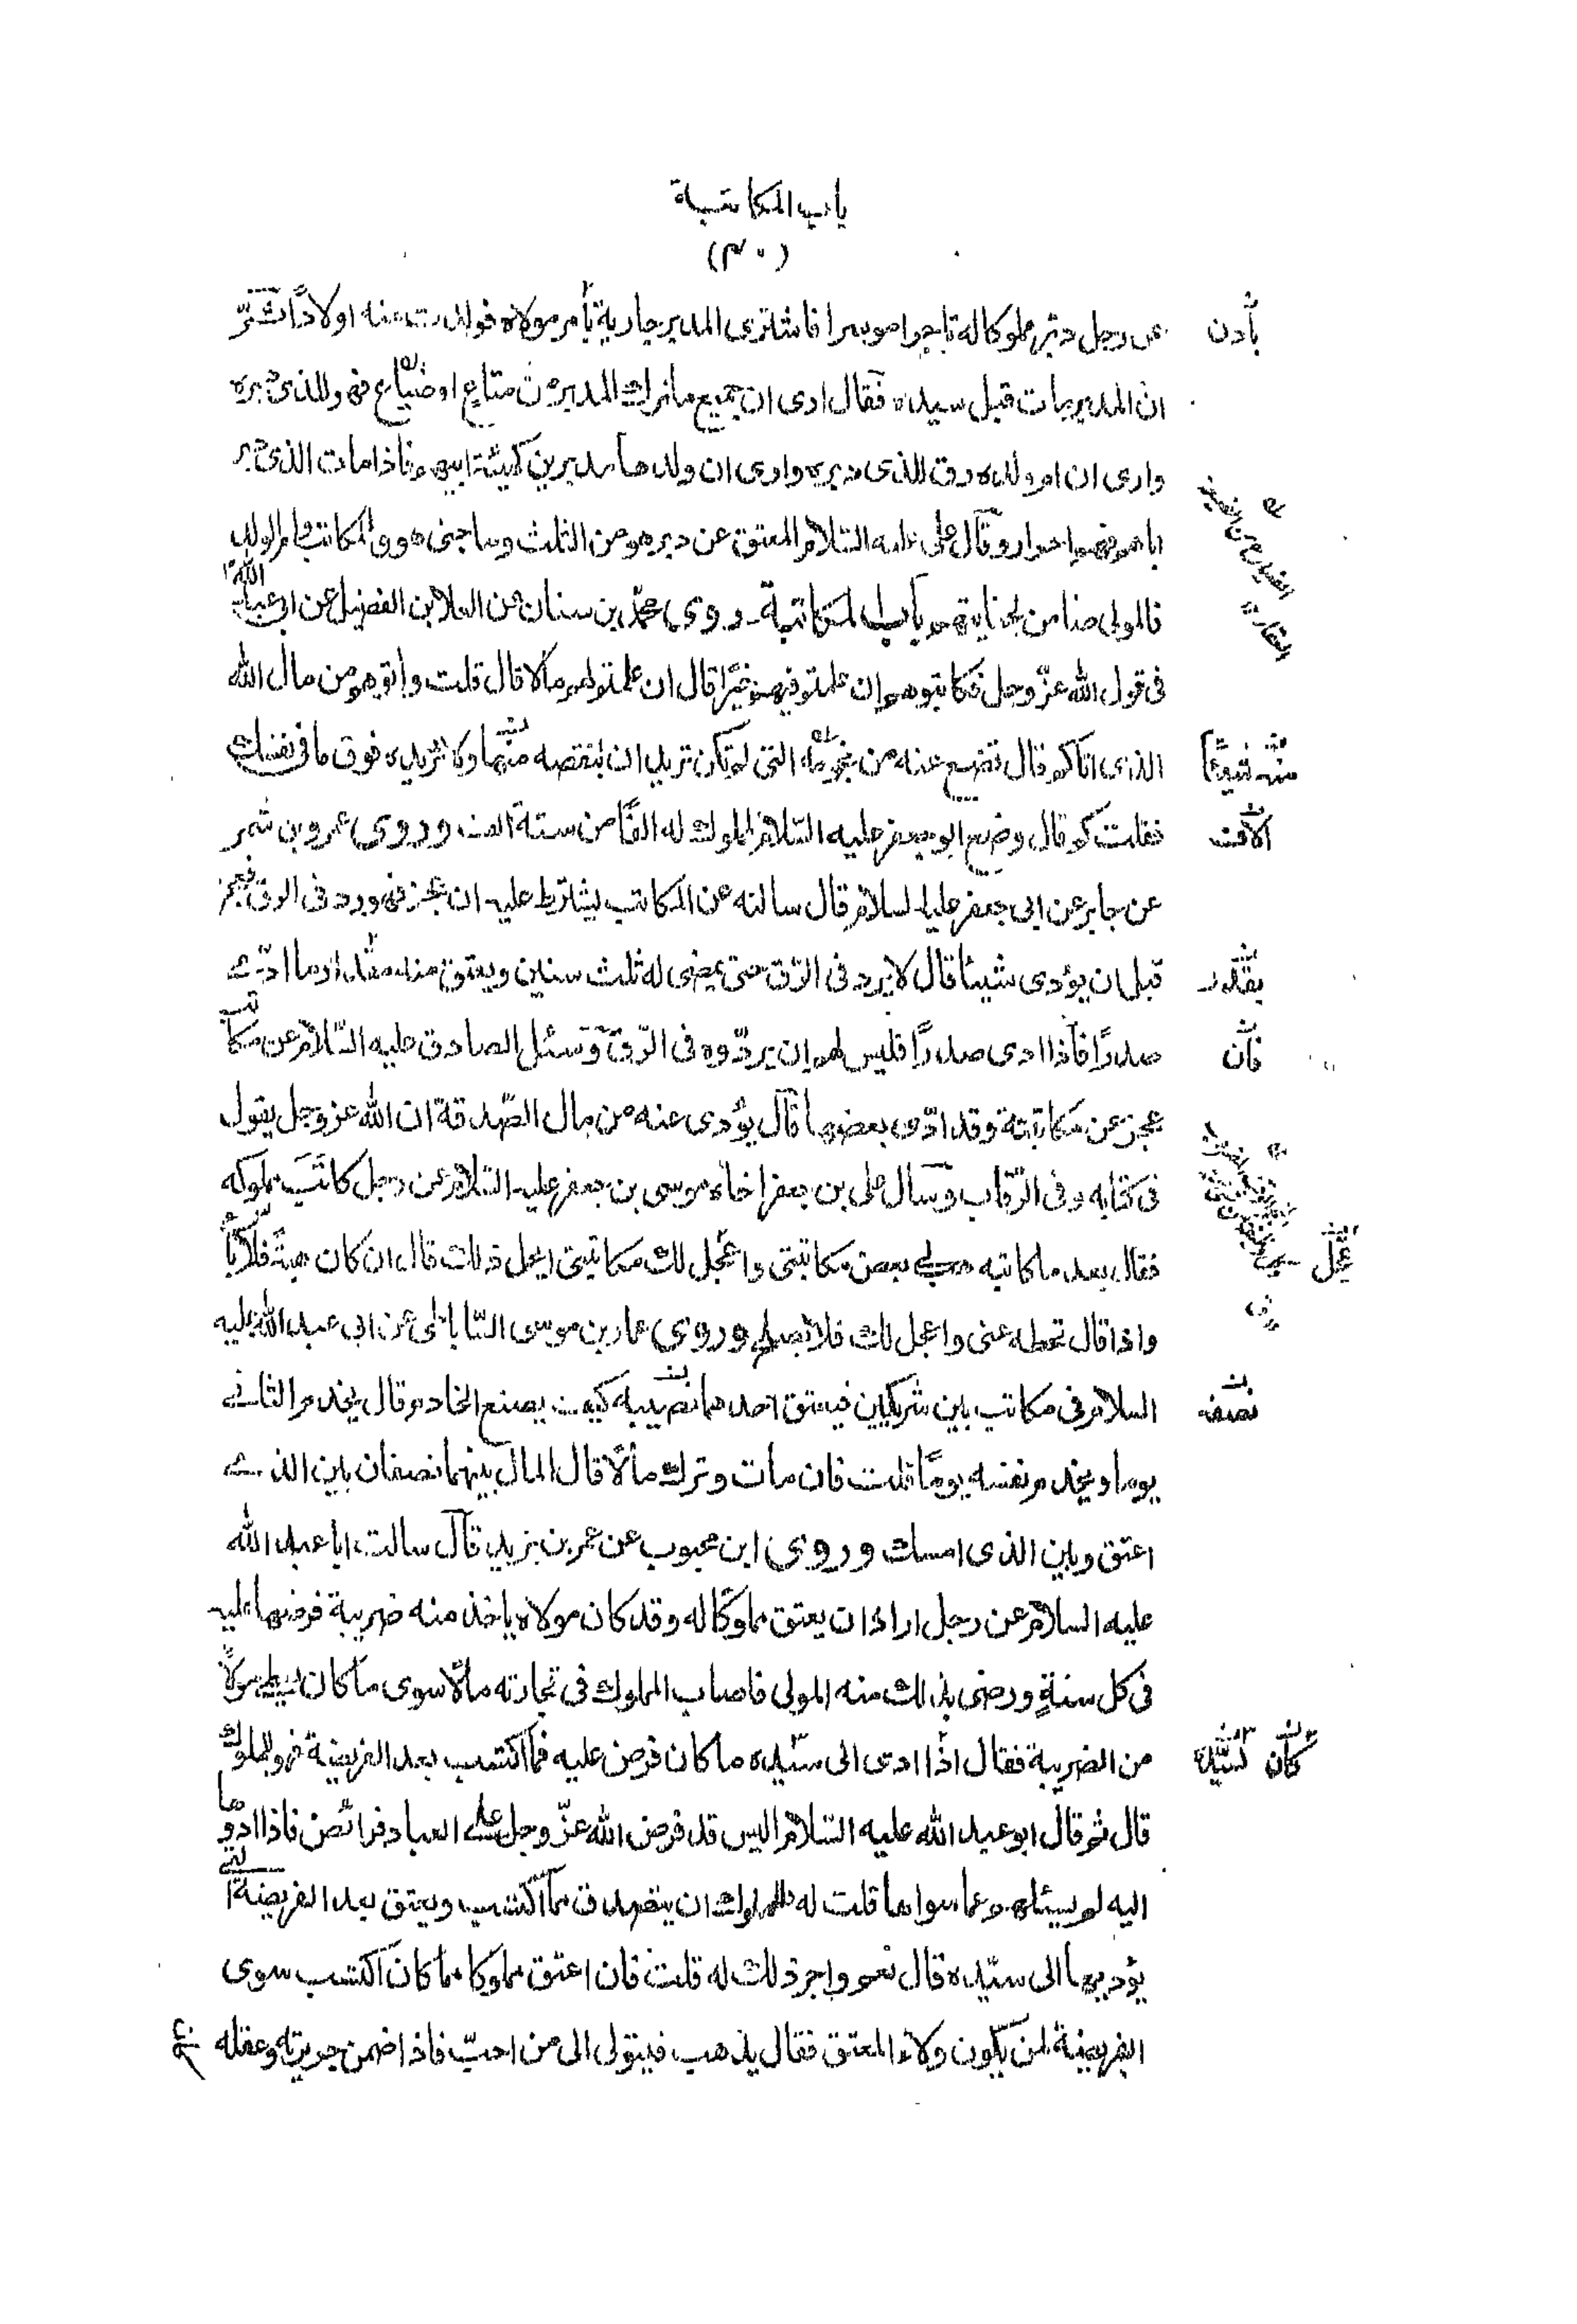 باب المكاتبة
(٣٠)
عن رجل دبّر مملوكا له تاجرا موسرا فاشترى المدبر جارية بأمر مولاه فولدت منه اولادًا ثمّ
ان المدبر مات قبل سيده فقال ارى ان جميع ما ترك المدبر من متاع او ضياع فهو للذى دبره
وارى ان ام ولده رق للذى دبره وارى ان ولدها مدبرين كهيئة ابيهم فاذا مات الذى دبر
اباهم فهم احرار وقال على عليه السّلام المعتق عن دبر هو من الثلث وما جنى هو والمكاتب وام الولد
فالمولى ضامن لجنايتهم باب المكاتبة روى محمّد بن سنان عن العلا بن الفضيل عن ابى عبد الله
فى قول الله عزّ وجل فكاتبوهم ان علمتم فيهم خيرًا قال ان علمتم لهم مالا قال قلت واتوهم من مال الله
الذى اتاكم قال تضع عنه من نجومه التى لم تكن تريد ان تنقصه منها ولا تزيده فوق ما فى نفسك
فقلت كم قال وضع ابو جعفر عليه السّلام لمملوك له الفًا من ستة الاف وروى عمرو بن شمر
عن جابر عن ابى جعفر عليه السلام قال سالته عن المكاتب يشترط عليه ان عجز فهو رد فى الرق فعجز
قبل ان يؤدى شيئا قال لا يرد فى الرّق حتى يمضى له ثلث سنين ويعتق منه مقدار ما ادّى
صدرًا فاذا ادى صدرًا فليس لهم ان يردّوه فى الرّق وسئل الصادق عليه السّلام عن مكاتب
عجز عن مكاتبته وقد ادّى بعضها قال يؤدى عنه من مال الصّدقة ان الله عز وجل يقول
فى كتابه وفى الرّقاب وسال على بن جعفر اخاه موسى بن جعفر عليه السّلام عن رجل كاتب مملوكه
فقال بعد ما كاتبه هب لى بعض مكاتبتى واعجل لك مكاتبتى ايحل ذلك قال ان كان هبة فلا باس
واذا قال تحطه عنى واعجل لك فلا يصلح وروى عمار بن موسى السّاباطى عن ابى عبد الله عليه
السلام فى مكاتب بين شريكين فيعتق احدهما نصيبه كيف يصنع الخادم قال يخدم الثانى
يوما ويخدم نفسه يومًا قلت فان مات وترك مالًا قال المال بينهما نصفان بين الذى
اعتق وبين الذى امسك وروى ابن محبوب عن عمر بن يزيد قال سالت ابا عبد الله
عليه السلام عن رجل اراد ان يعتق مملوكًا له وقد كان مولاه ياخذ منه ضريبة فرضها عليه
فى كل سنةٍ ورضى بذلك منه المولى فاصاب المملوك فى تجارته مالًا سوى ما كان يعطى مولاه
من الضريبة فقال اذا ادى الى سيّده ما كان فرض عليه فما اكتسب بعد الفريضة فهو للمملوك
قال ثم قال ابو عبد الله عليه السّلام اليس قد فرض الله عزّ وجل على العباد فرائض فاذا ادّوها
اليه لم يسئلهم عما سواها قلت له للمملوك ان يتصدق مما اكتسب ويعتق بعد الفريضة التى
يؤديها الى سيّده قال نعم واجر ذلك له قلت فان اعتق مملوكا مما كان اكتسب سوى
الفريضة لمن يكون ولاء المعتق فقال يذهب فيتولى الى من احبّ فاذا ضمن جريرته وعقله
بأذن
منه شيئًا
الاف
بقدر
فان
عجّل
نصفه
كان لسيّده